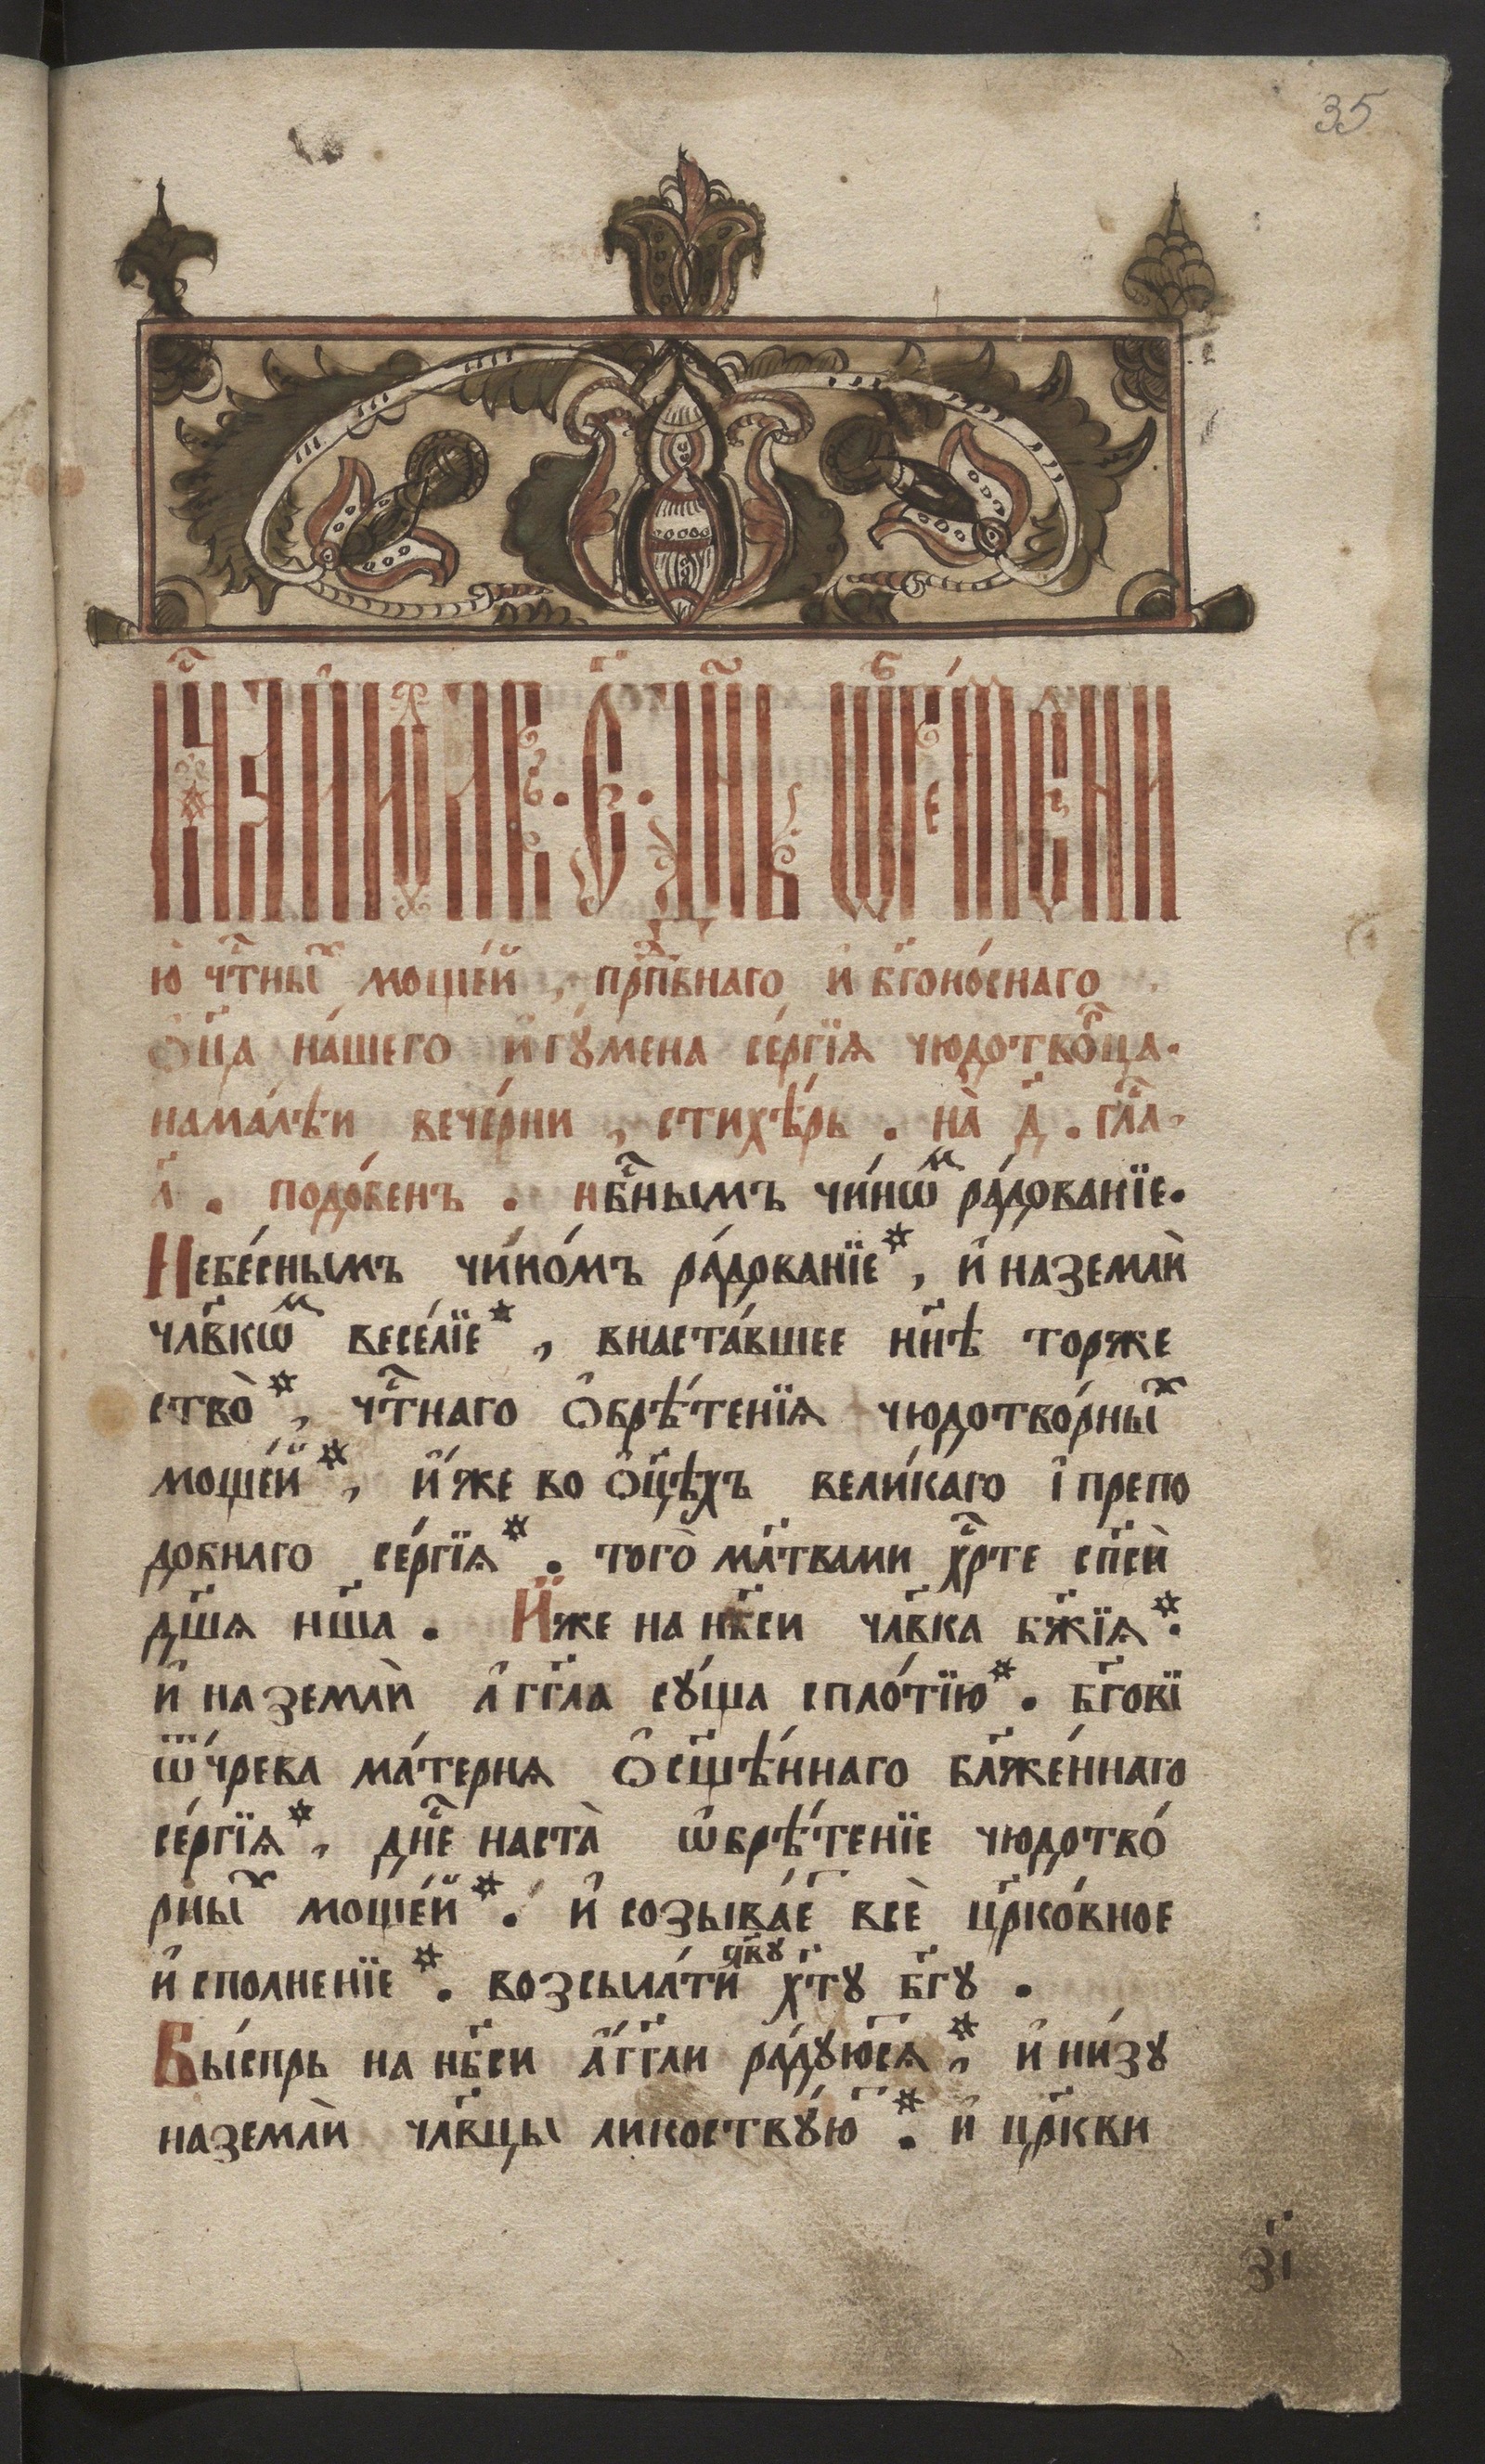 35
мц҃а і҆ю́лѧ . є҃ . дн҃ь ѡ҆брѣ́тени
ю̀ чⷭ҇тны́ⷯ моще́й , прпⷣбнаго и҆ бг҃оно́снаго
ѻ҆ц҃а на́шего и҆гꙋ́мена се́ргїѧ чюдотво́рⷰца .
нама́лѣи вече́рни , стихѣ́рь . на̀ д҃ . гла҃
а҃ . подо́бенъ . нбⷭ҇нымъ чи́нѡⷨ ра́дованїе .
Небе́снымъ чи́но́мъ ра́дованїе * , и҆ наземлѝ
члв҃кѡⷨ весе́лїе * , внаста́вшее нн҃ѣ торже
ство̀ * , чⷭ҇тнаго ѻ҆брѣ́тенїѧ чюдотво́рныⷯ
моще́й * , и҆́же во ѻ҆ц҃ѣхъ вели́ка́го і҆ препо
добнаго се́ргїѧ * . того̀ мл҃твами хрⷭ҇те сп҃си̇̀
дш҃ѧ нш҃а . И҆́же на нб҃си члв҃ка бж҃їѧ * .
и҆ на землѝ а҆́гг҃ла сꙋ́ща спло́тїю * . бг҃ові
ѿ чре́ва ма́терня ѻ҆сщ҃ѣ́ннаго блж҃е́ннаго
се́ргїѧ * , дне҃ⷭ настà ѡ҆брѣ́тенїе чюдотво́
рныⷯ моще́й * . и҆ созыва́еⷮ всѐ цр҃ко́вное
и҆сполненїе * . возсыла́ти сла́вꙋ хрⷭ҇тꙋ бг҃ꙋ .
Вы́спрь на нб҃си а҆́гг҃ли ра́дꙋюⷮсѧ * , и҆ ни́зꙋ
наземлѝ члв҃цы ликоствꙋ́юⷮ * . и҆ цр҃кви
з҃і